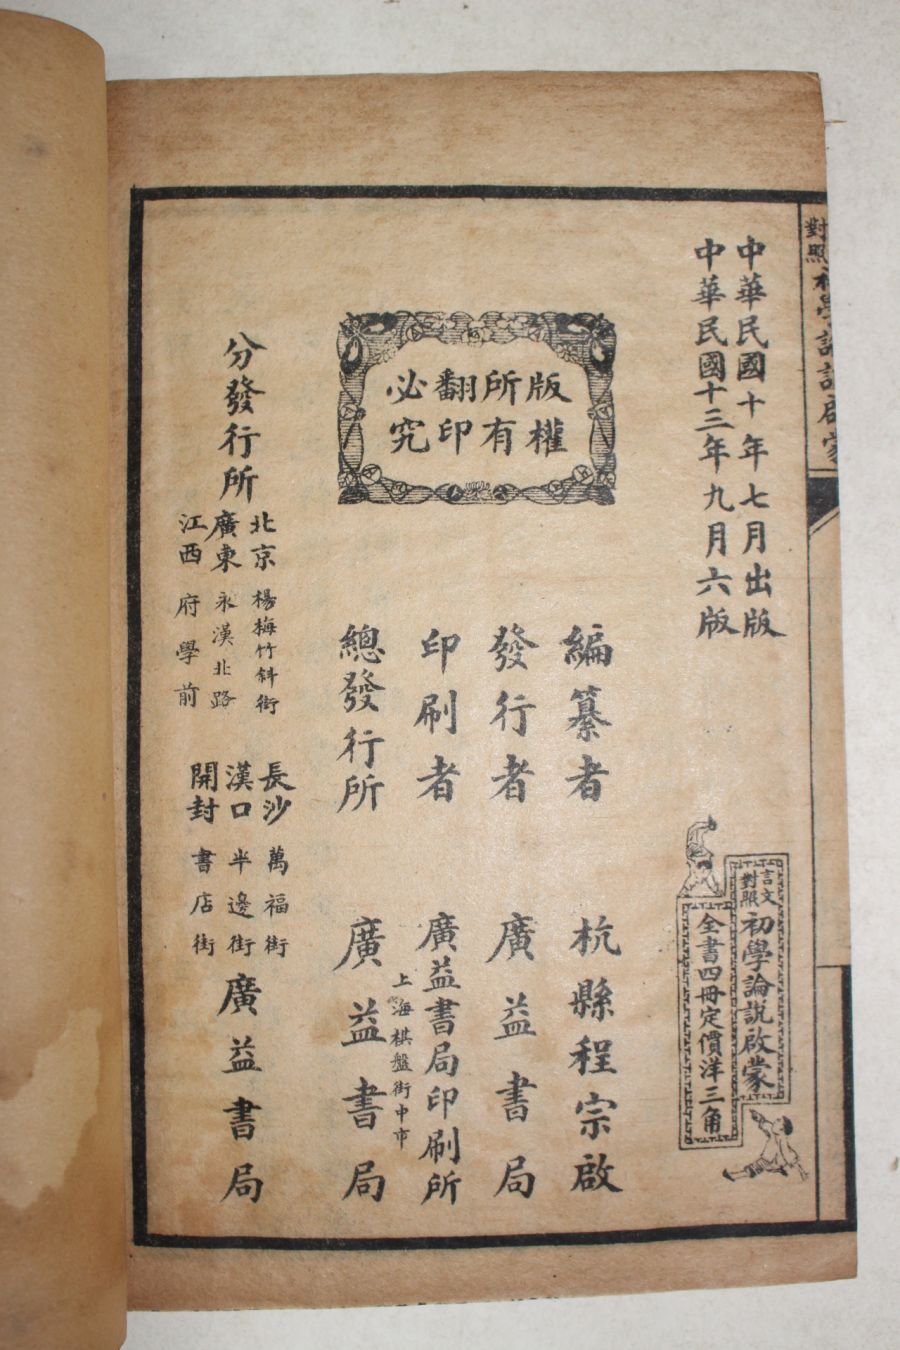 對照初學論說啟蒙
中華民國十年七月出版
中華民國十三年九月六版
言文對照初學論說啟蒙
全書四冊定價洋三角
版權
所有
翻印
必究
編纂者 杭縣程宗啟
發行者 廣益書局
印刷者 廣益書局印刷所
上海棋盤街中市
總發行所 廣益書局
分發行所
北京 楊梅竹斜街
廣東 永漢北路
江西 府學前
長沙 萬福街
漢口 半邊街
開封 書店街
廣益書局